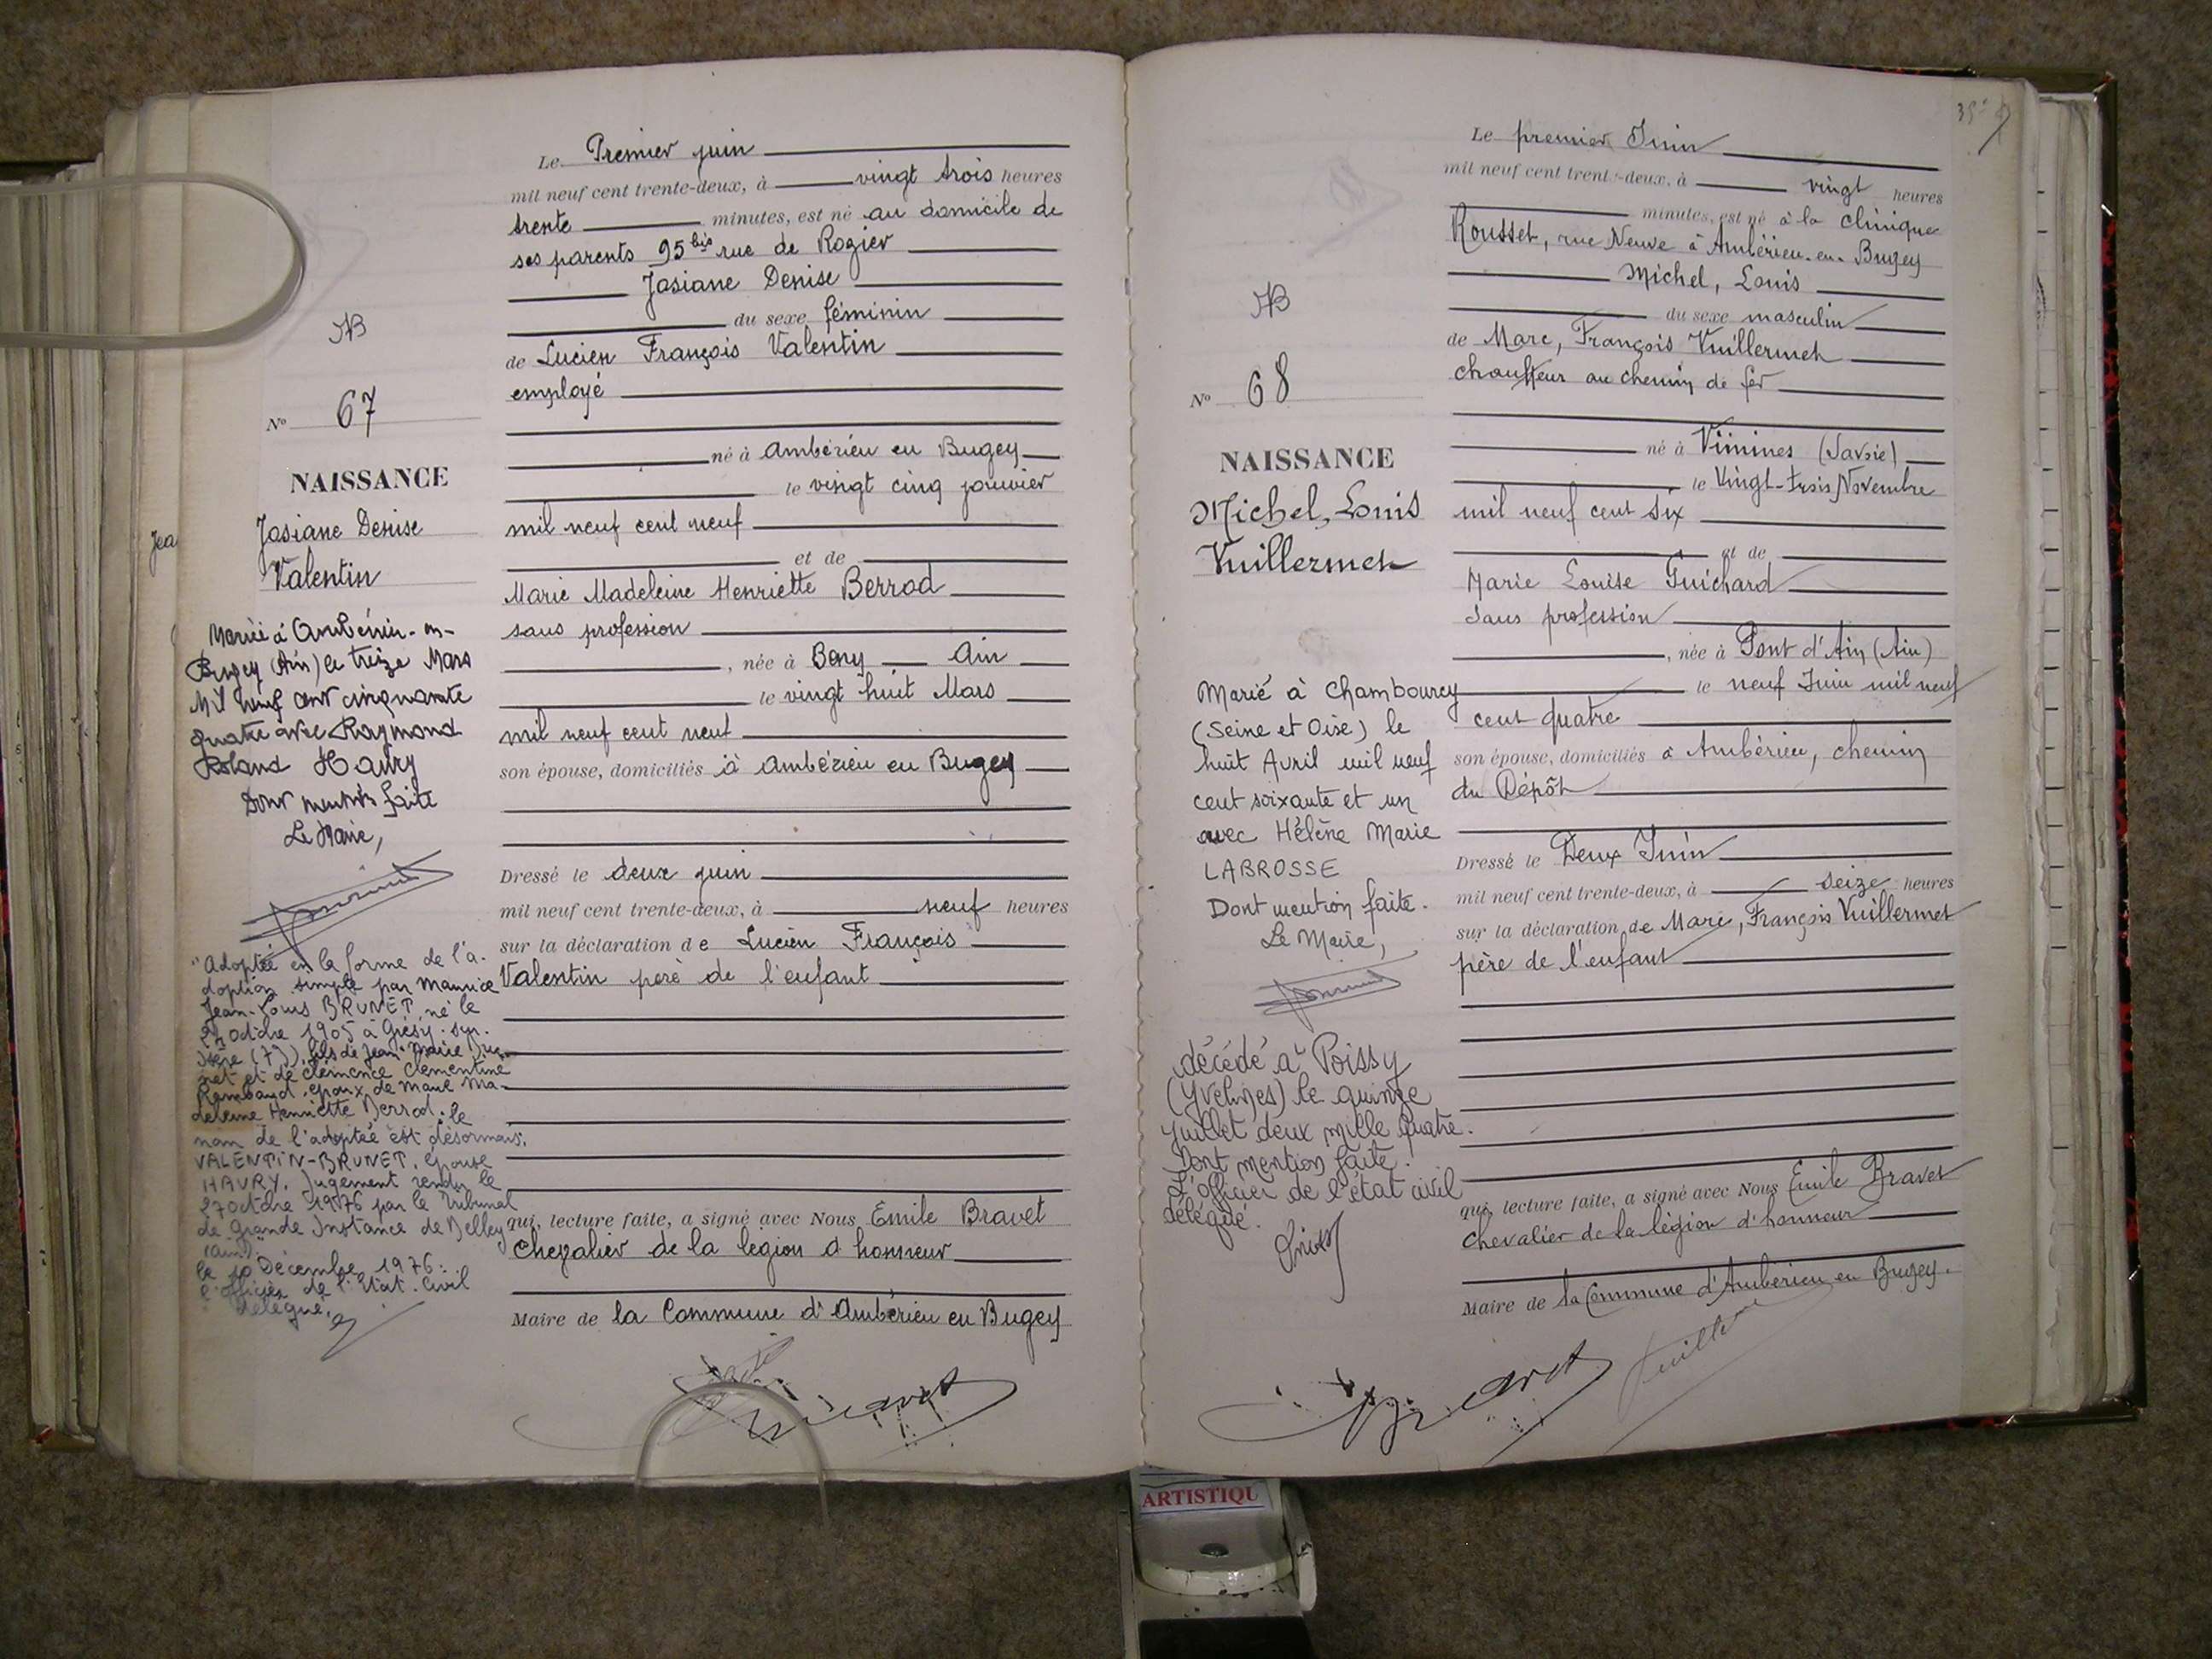 Le Premier juin
mil neuf cent trente-deux, à vingt trois heures
trente minutes, est né au domicile de
ses parents 95 bis rue de Rozier
Josiane Denise
du sexe féminin
de Lucien François Valentin
employé
né à Ambérieu en Bugey
le vingt cinq janvier
mil neuf cent neuf
et de
Marie Madeleine Henriette Berrod
sans profession
, née à Bény Ain
le vingt huit Mars
mil neuf cent neuf
son épouse, domiciliés à Ambérieu en Bugey
Dressé le deux juin
mil neuf cent trente-deux, à neuf heures
sur la déclaration de Lucien François
Valentin père de l'enfant
qui, lecture faite, a signé avec Nous Emile Bravet
Chevalier de la legion d honneur
Maire de la Commune d'Ambérieu en Bugey
No 67
NAISSANCE
Josiane Denise
Valentin
Mariée à Ambérieu-en-
Bugey (Ain) le treize Mars
Mil neuf cent cinquante
quatre avec Raymond
Roland Havry
Dont mention faite
Le Maire,
"Adoptée en la forme de l'a-
doption simple par Maurice
Jean-Louis BRUNET né le
octobre 1905 à Grésy-sur-
Isère (73), fils de Jean-Marie Bru-
net et de Clémence Clémentine
Rambaud, époux de Marie Ma-
deleine Henriette Berrod. le
nom de l'adoptée est désormais:
VALENTIN-BRUNET, épouse
HAVRY. Jugement rendu le
27 octobre 1976 par le Tribunal
de Grande Instance de Belley
(Ain).
le 10 Décembre 1976:
l'officier de l'Etat-Civil
délégué,
Jea
35
Le premier Juin
mil neuf cent trente-deux, à vingt heures
minutes, est né à la clinique
Rousset, rue Neuve à Ambérieu-en-Bugey
Michel, Louis
du sexe masculin
de Marc, François Vuillermet
chauffeur au chemin de fer
né à Vimines (Savoie)
le Vingt-trois Novembre
mil neuf cent six
et de
Marie Louise Guichard
Sans profession
, née à Pont d'Ain (Ain)
le neuf Juin mil neuf
cent quatre
son épouse, domiciliés à Ambérieu, chemin
du Dépôt
Dressé le Deux Juin
mil neuf cent trente-deux, à seize heures
sur la déclaration de Marc, François Vuillermet
père de l'enfant
qui, lecture faite, a signé avec Nous Emile Bravet
chevalier de la légion d'honneur
Maire de la Commune d'Ambérieu en Bugey.
No 68
NAISSANCE
Michel, Louis
Vuillermet
Marié à Chambourcy
(Seine et Oise) le
huit Avril mil neuf
cent soixante et un
avec Hélène Marie
LABROSSE
Dont mention faite.
Le Maire,
décédé à Poissy
(Yvelines) le quinze
juillet deux mille quatre.
Dont mention faite.
L'officier de l'état civil
délégué.
ARTISTIQU